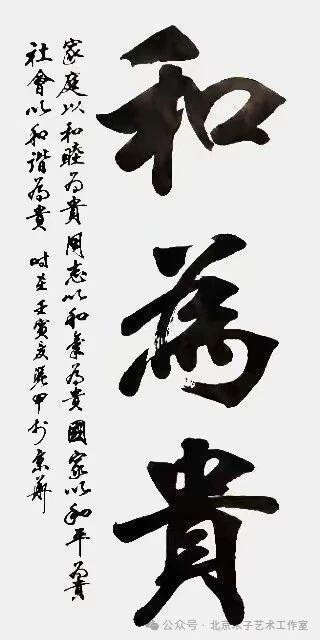 和為貴
家庭以和睦為貴同志以和氣為貴國家以和平為貴
社會以和谐為貴 时在壬寅 甲 於京華
公众号 · 北京木子艺术工作室